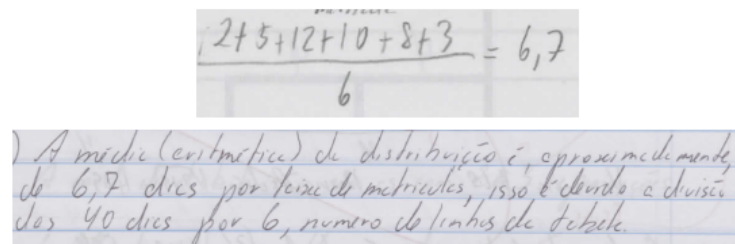 2+5+12+10+8+3 = 6,7
6
) A média (aritmética) da distribuição é, aproximadamente,
de 6,7 dias por faixa de matrículas, isso é devido a divisão
dos 40 dias por 6, numero de linhas da tabela.